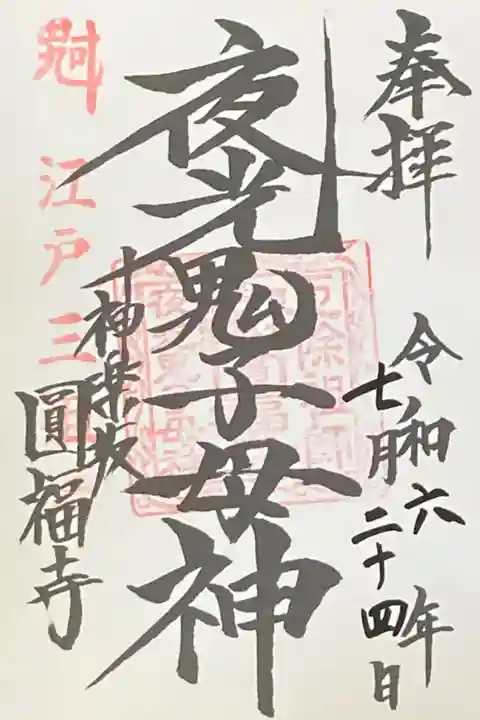 奉拝
令和六年
七月二十四日
夜光鬼子母神
神楽坂
圓福寺
江戸三